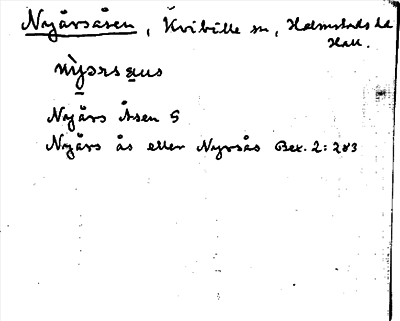 Nyårsåsen, Kvibille sn, Halmstads hd
Hall.
nỳɔrs aus
Nyårs Åsen S
Nyårs ås eller Nyrsås Bex. 2: 283